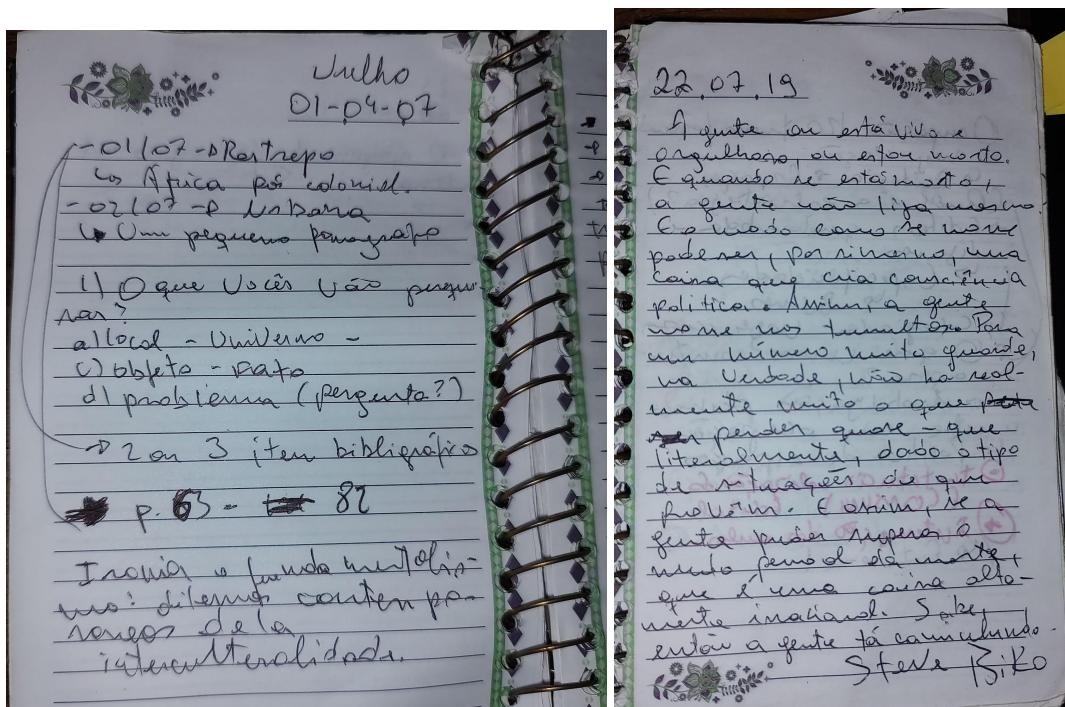 Julho
01-04-07
-01/07 -> Restrepo
↳ África pós colonial.
-02/07 -> Urbana
↳ Um pequeno fonografo
1) O que vocês vão pesqui-
sar?
a) local - Universo -
c) objeto - fato
d) problema (pergunta?)
-> 2 ou 3 item bibligráfico
p. 63 - 82
Ironia o fundamentalis-
mo: dilemas contempo-
raneos de la
interculturalidade.
22.07.19
A gente ou está vivo e
orgulhoso, ou estou morto.
E quando se está morto,
a gente não liga mesmo.
E o modo como se morre
pode ser, por si mesmo, uma
coisa que cria consciência
política. Assim, a gente
morre nos tumultos. Para
um número muito grande,
na verdade, não há real-
mente muito o que
perder quase - que
literalmente, dado o tipo
de situações de que
provêm. E assim, se a
gente puder superar o
medo pessoal da morte,
que é uma coisa alta-
mente irracional. Sabe,
então a gente tá caminhando.
Steve Biko